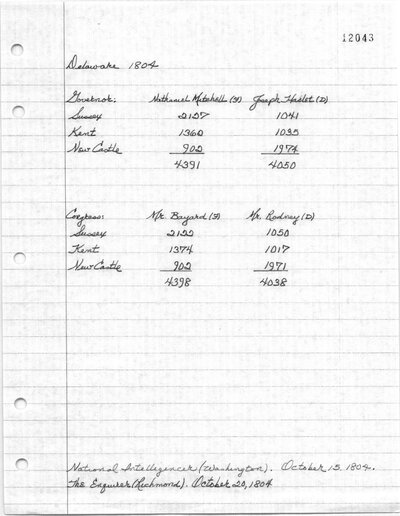 12043
Delaware 1804
Governor: Nathaniel Mitchell (F) Joseph Haslet (D)
Sussex 2127 1041
Kent 1362 1035
New Castle 902 1974
4391 4050
Congress: Mr. Bayard (F) Mr. Rodney (D)
Sussex 2122 1050
Kent 1374 1017
New Castle 902 1971
4398 4038
National Intelligencer (Washington). October 15, 1804.
The Enquirer (Richmond). October 20, 1804